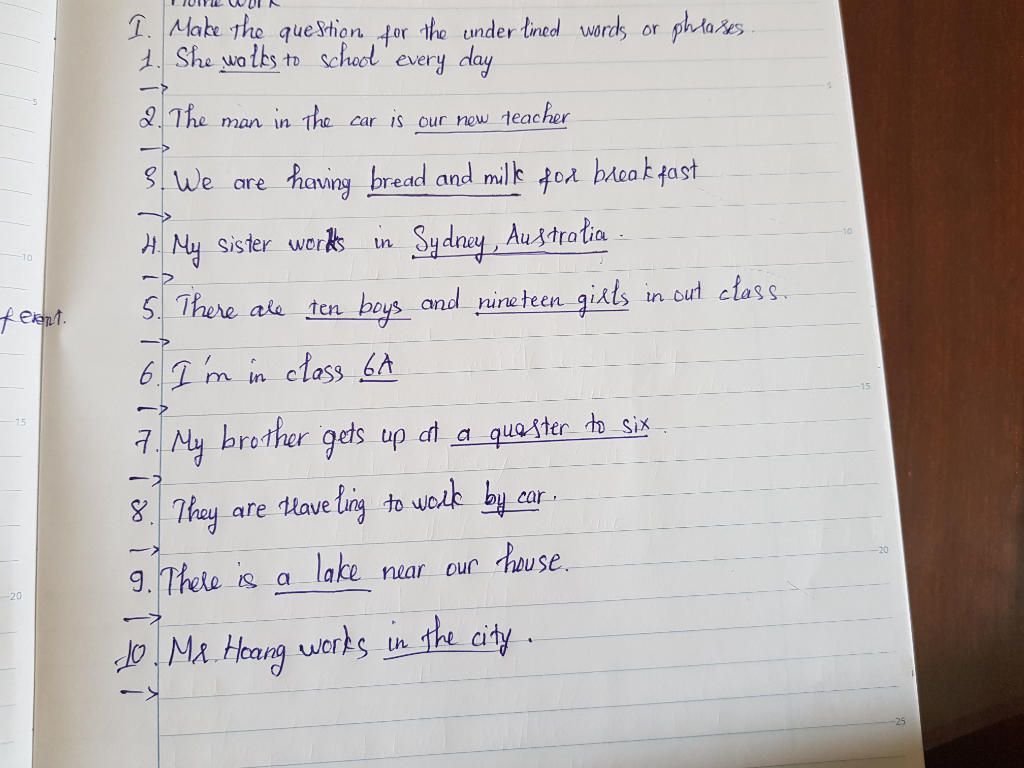 Home Work
I. Make the question for the underlined words or phrases.
1. She walks to school every day
→
2. The man in the car is our new teacher
→
3. We are having bread and milk for breakfast
→
4. My sister works in Sydney, Australia.
→
5. There are ten boys and nineteen girls in out class.
→
6. I'm in class 6A
→
7. My brother gets up at a quarter to six.
→
8. They are traveling to work by car.
→
9. There is a lake near our house.
→
10. Mr. Hoang works in the city.
→
5
10
15
20
25
10
15
20